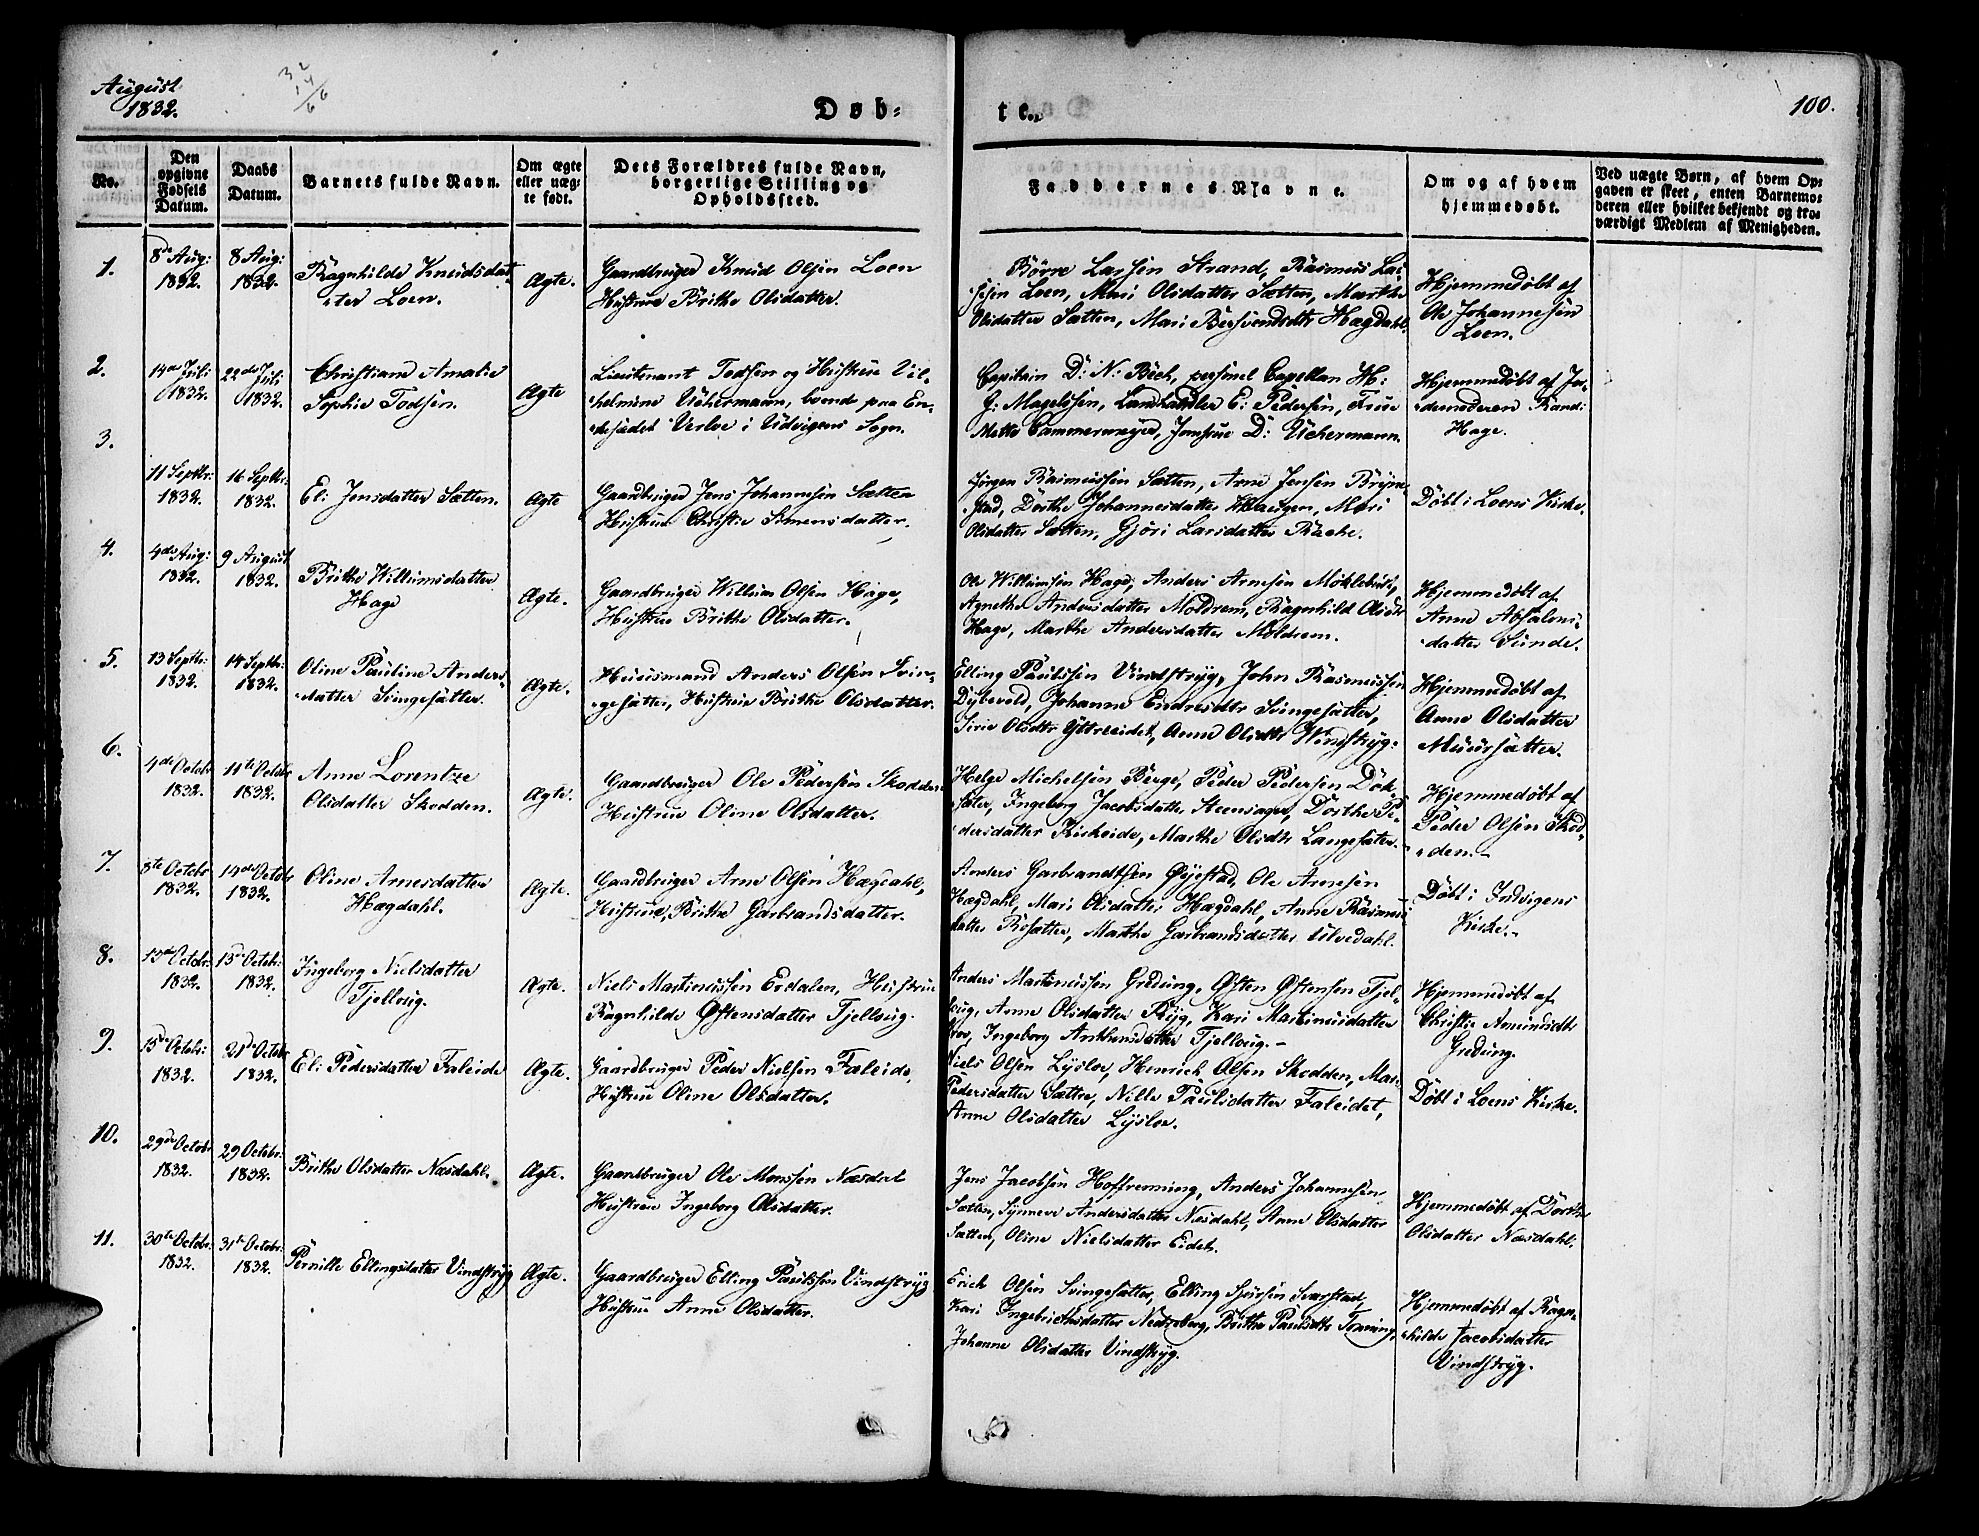 August
1832.
32
14
66
Døb-
te.
100.
No.
Den
opgivne
Fødsels
Datum.
Daabs
Datum.
Barnets fulde Navn.
Om ægte
eller uæg-
te født.
Dets Forældres fulde Navn,
borgerlige Stilling og
Opholdssted.
Faddernes Navne.
Om og af hvem
hjemmedøbt.
Ved uægte Børn, af hvem Op-
gaven er skeet, enten Barnemo-
deren eller hvilket bekjendt og tro-
værdigt Medlem af Menigheden.
1.
8de Aug:
1832.
8 Aug:
1832.
Ragnhilde Knudsdat-
ter Loen.
Ægte.
Gaardbruger Knud Olsen Loen
Hustrue Brithe Olsdatter.
Børre Larsen Strand, Rasmus Lar-
sen Loen, Mari Olsdatter Sætten, Marthe
Olsdatter Sætten, Mari Bersvendsdtr Hægdahl.
Hjemmedøbt af
Ole Johannesen
Loen.
2.
14de Juli
1832.
22de Juli
1832.
Christiane Amalie
Sophie Todsen.
Ægte
Lieutenant Todsen og Hustrue Vil-
helmine Uchermann, boend paa En-
kesædet Verloe i Udvigens Sogn.
Capitain D: N: Bech, personel Capellan H:
G: Magelssen, Landhandler E: Pedersen, Frue
Mette Cammermeyer, Jomfrue D: Uchermann.
Hjemmedøbt af Jor-
demoderen Randi
Hage.
3.
11 Septbr:
1832.
16 Septbr:
1832.
Eli Jensdatter Sætten.
Ægte
Gaardbruger Jens Johannesen Sætten
Hustrue Christie Simensdatter.
Jørgen Rasmussen Sætten, Arne Jensen Bryne-
stad, Dorthe Johannesdatter Haugen, Mari
Olsdatter Sætten, Gjøri Larsdatter Rache.
Døbt i Loens Kirke.
4.
4de Aug:
1832.
9 August
1832.
Brithe Willumsdatter
Hage
Ægte.
Gaardbruger Willum Olsen Hage,
Hustrue Brithe Olsdatter.
Ole Willumsen Hage, Anders Arnesen Møklebust,
Agnethe Andersdatter Moldrem, Ragnhild Olsdtr
Hage, Marthe Andersdatter Moldrem.
Hjemmedøbt af
Anne Absalons-
datter Sunde.
5.
13 Septbr:
1832.
14 Septbr:
1832.
Oline Pauline Anders-
datter Svingesætter.
Ægte.
Huusmand Anders Olsen Svin-
gesætter, Hustrue Brithe Olsdatter.
Elling Paulssen Vindstryg, John Rasmussen
Dybevold, Johanne Endresdtr Svingesætter,
Sirie Olsdtr Ytreeidet, Anne Olsdtr Windstryg.
Hjemmedøbt af
Anne Olsdatter
Muursætter.
6.
4de Octob:
1832.
11te Octob:
1832.
Anne Lorentze
Olsdatter Skodden.
Ægte.
Gaardbruger Ole Pedersen Skodden
Hustrue Oline Olsdatter.
Helge Michelsen Berge, Peder Pedersen Døk-
sæter, Ingeborg Jacobsdatter Steensager, Dorthe Pe-
dersdatter Kirkeide, Marthe Olsdtr Langesæter.
Hjemmedøbt af
Peder Olsen Skod-
den.
7.
8te Octobr
1832.
14de Octobr
1832.
Oline Arnesdatter
Hægdahl.
Ægte.
Gaardbruger Arne Olsen Hægdahl,
Hustrue Brithe Garbrandsdatter.
Anders Garbrandtsen Øyestad, Ole Arnesen
Hægdahl, Mari Olsdatter Hægdahl, Anne Rasmus-
datter Risætter, Marthe Garbrandsdatter Ulvedahl.
Døbt i Indvigens
Kirke.
8.
15de Octobr:
1832.
15de Octobr:
1832.
Ingeborg Nielsdatter
Tjelloug.
Ægte.
Niels Martinussen Erdalen, Hustrue
Ragnhilde Østensdatter Tjelloug.
Anders Martinussen Gredung, Østen Østensen Tjel-
loug, Anne Olsdatter Ryg, Kari Martinusdatter
Ingeborg Anthunsdatter Tjelloug.
Hjemmedøbt af
Christie Amundsdtr
Gredung.
9.
15de Octobr:
1832.
21de Octobr
1832.
Eli Pedersdatter Faleide
Ægte.
Gaardbruger Peder Nielsen Faleide,
Hustrue Oline Olsdatter.
Niels Olsen Lysloe, Henrich Olsen Skodden, Mari
Pedersdatter Sættre, Nille Paulsdatter Faleidet,
Anne Olsdatter Lysloe.
Døbt i Loens Kirke.
10.
29de Octobr
1832.
29 Octobr:
1832.
Brithe Olsdatter Næsdahl.
Ægte.
Gaardbruger Ole Monssen Næsdal
Hustrue Ingeborg Olsdatter.
Jens Jacobsen Hoffrenning, Anders Johannesen
Sætten, Synneve Andersdatter Næsdahl, Anne Olsdatter
Sætten, Oline Nielsdatter Eidet.
Hjemmedøbt af Dorthe
Olsdatter Næsdahl.
11.
30te Octobr:
1832.
31te Octobr:
1832.
Pernille Ellingsdatter Vindstryg
Ægte.
Gaardbruger Elling Paulssen Vindstryg
Hustrue Anne Olsdatter.
Erich Olsen Svingesætter, Elling Sjursen Svarstad,
Kari Ingebrichtsdatter Nedreberg, Brithe Paulsdtr Tonning,
Johanne Olsdatter Vindstryg.
Hjemmedøbt af Ragn-
hilde Jacobsdatter
Vindstryg.